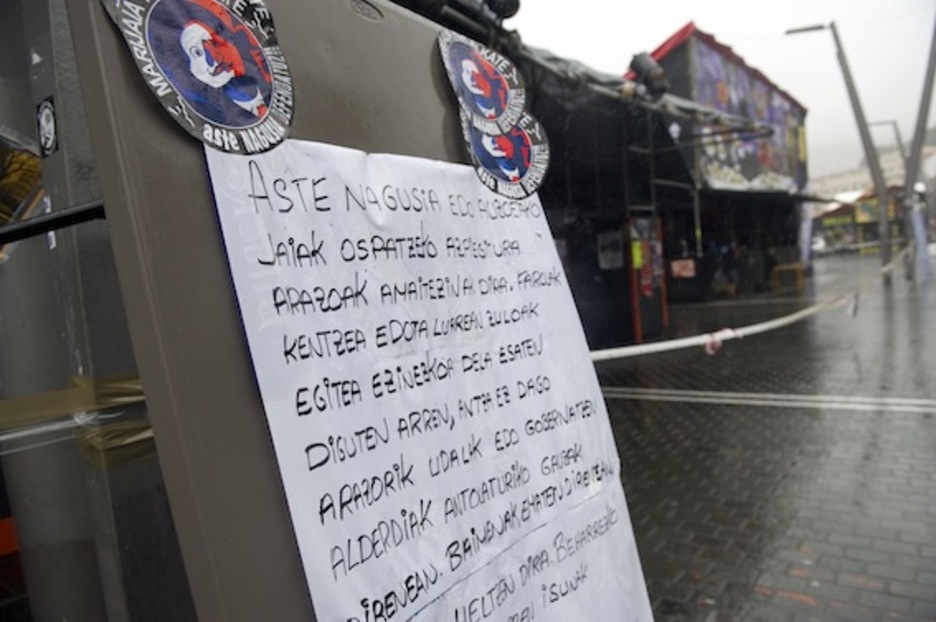 aste NAGUSI
ASTE NAGUSIA EDO AUZOETAKO
JAIAK OSPATZEKO AZPIEGITURA
ARAZOAK AMAITEZINAK DIRA. FAROLAK
KENTZEA EDOTA LURREAN ZULOAK
EGITEA EZINEZKOA DELA ESATEN
DIGUTEN ARREN, ANTZA EZ DAGO
ARAZORIK UDALIK EDO GOBERNATZEN
ALDERDIAK ANTOLATURIKO GAUZAK
DIRENEAN. BAIMENAK EMATEN DIRENEAN
HELTZEN DIRA. BEHARREZKO
ISUNAK